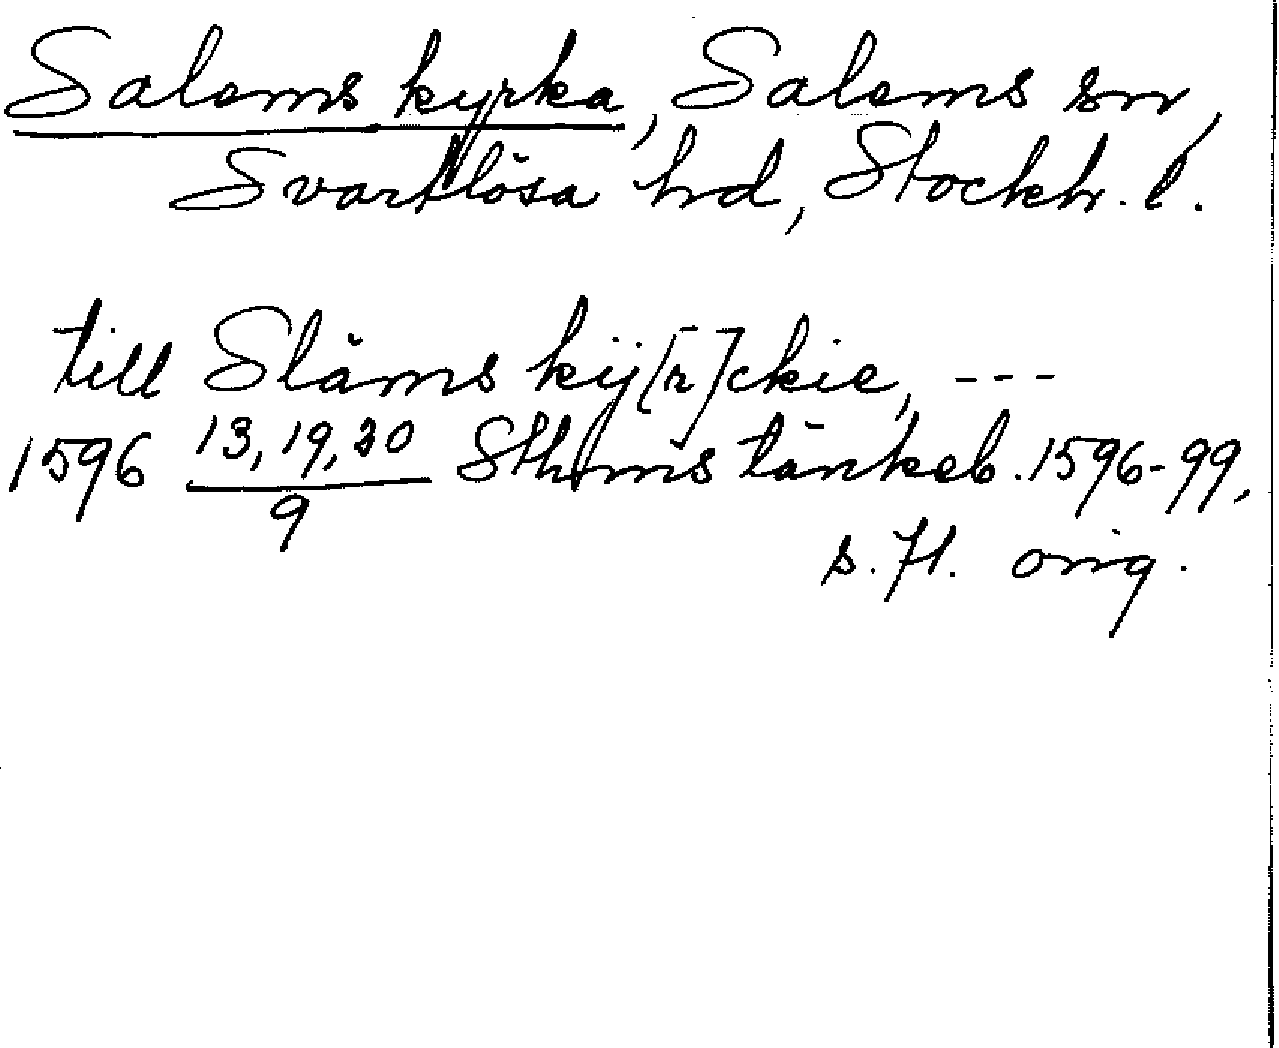 Salems kyrka, Salems sn,
Svartlösa hd, Stockh. l.
till Släms kÿ[r]ckie, ---
1596 13, 19, 20/9 Sthms tänkeb. 1596-99,
s. 71. orig.